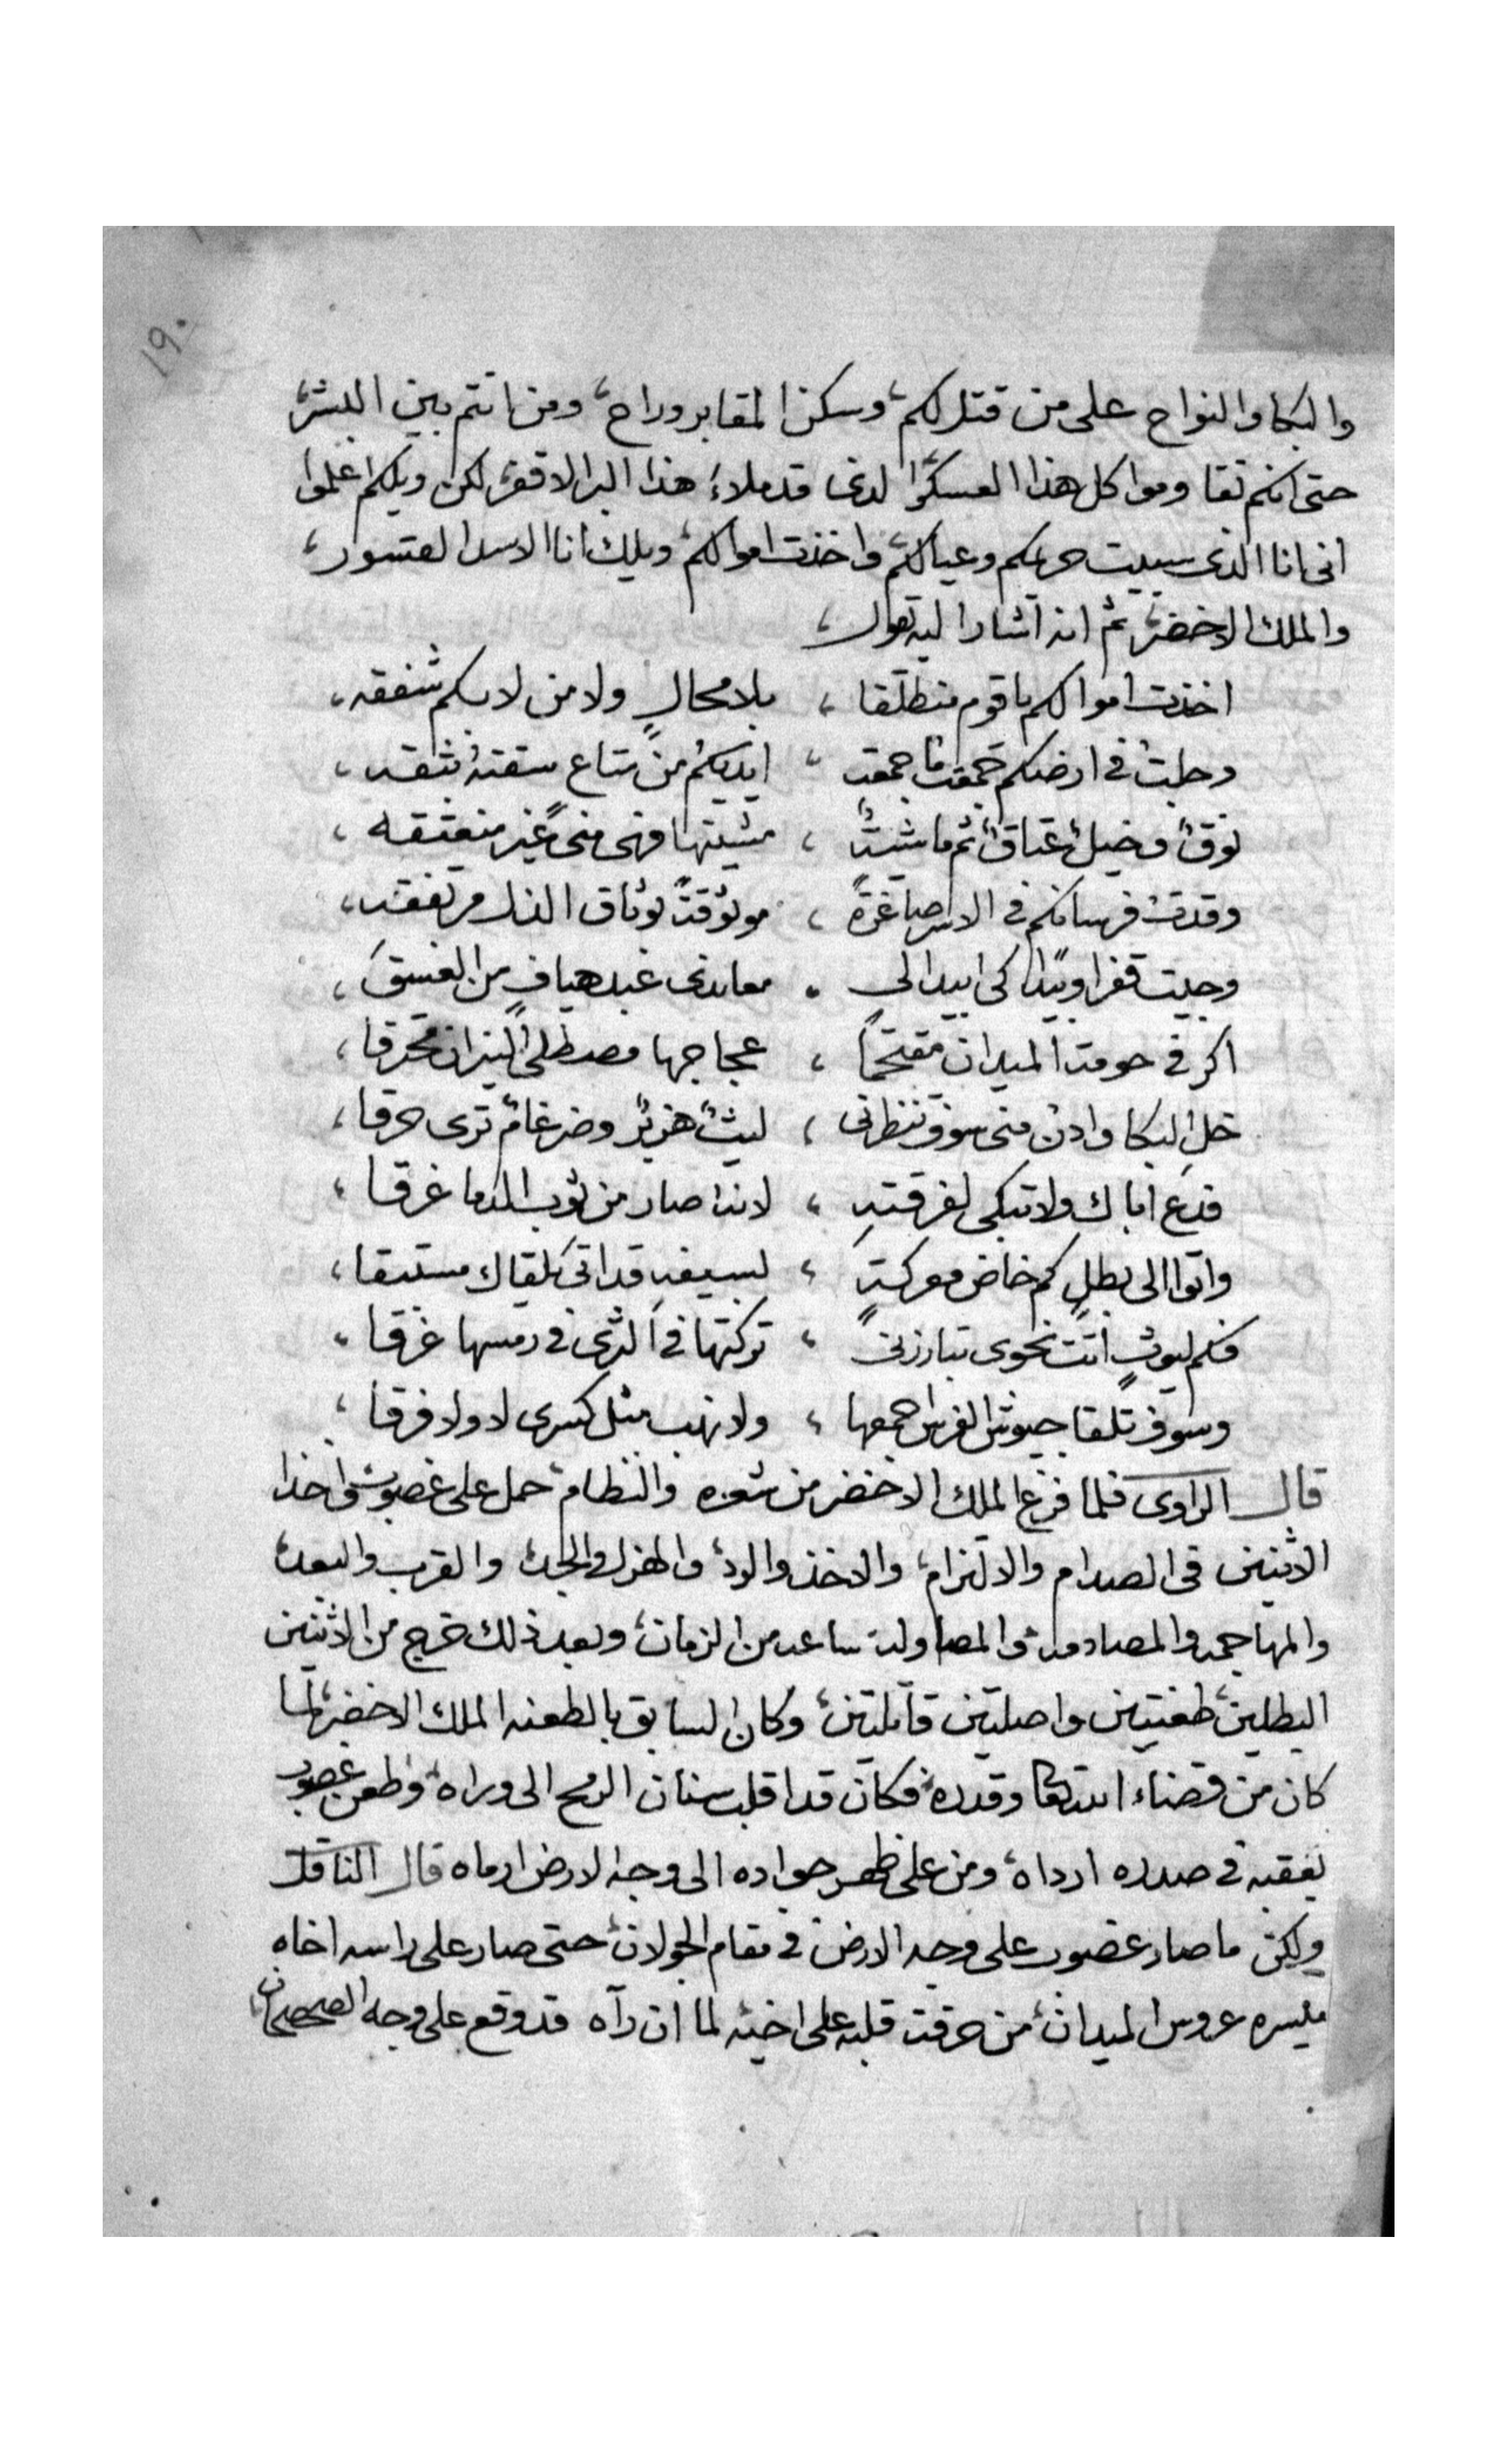 ١٩٠
والبكا والنواح على من قتل لكم، وسكن المقابر وراح، ومن انتم بين البشر،
حتى انكم تقاوموا كل هذا العسكر الذى قد ملاء هذا البر الاقفر، لكن ويلكم اعلموا
انى انا الذى سبيت حريمكم وعيالكم، واخذت اموالكم، ويلك انا الاسد القسور،
والملك الاخضر، ثم انه اشار اليه بقول،
اخذت اموالكم يا قوم منطلقا ، بلا محالٍ ولا من لا بكم شفقه،
وحلت فى ارضكم جمعت ما جمعت ، ايديكم من متاع سقته
نوق وخيل عتاق ثم ماشية ، مشيتها وهى منى غير منعتقه ،
وقدت فرسانكم فى الاسر صاغرة ، موثوقة بوثاق الذل مرتفقه،
وجيت قفرا وبيدا كى ابيد الى . معاندى عبد هياف من الفسقه ،
اكر فى حومة الميدان مقتحما ، عجاجها مصطلى النيران محترقا ،
خل البكا وادن منى سوف تنظرنى ، ليث هزبر وضرغام ترى حرقا ،
فدع اباك ولا تبكى لفرقته ، لانه صار من ثوب الدما غرقا ،
واتوا الى بطلٍ كم خاض معركةٍ ، بسيفه قد اتى لقاك مستبقا ،
فكم ليوثٍ اتت نحوى تبارزنى ، تركتها فى الثرى فى رمسها غرقا ،
وسوف تلقا جيوش الفرس اجمعها ، ولا نهب مثل كسرى لا ولا فرقا ،
قال الراوى فلما فرغ الملك الاخضر من شعره والنظام، حمل على غضوب، واخذا
الاثنين فى الصدام والالتزام، والاخذ والرد، والهزل والجد، والقرب والبعد،
والمهاجمه والمصادمه، والمصاوله ساعه من الزمان، وبعد ذلك خرج من الاثنين
البطلين، طعنتين واصلتين قاتلتين، وكان السابق بالطعنه الملك الاخضر، لما
كان من قضاء الله تعا وقدره، فكان قد اقلب سنان الرمح الى وراه، وطعن غضوب
بعقبه فى صدره ارداه، ومن على ظهر جواده الى وجه الارض ارماه قال الناقل
ولكن ما صار غضوب على وجه الارض فى مقام الجولان، حتى صار على راسه اخاه
ميسره عروس الميدان، من حرقت قلبه على اخيه لما ان رآه قد وقع على وجه الصحصحان،